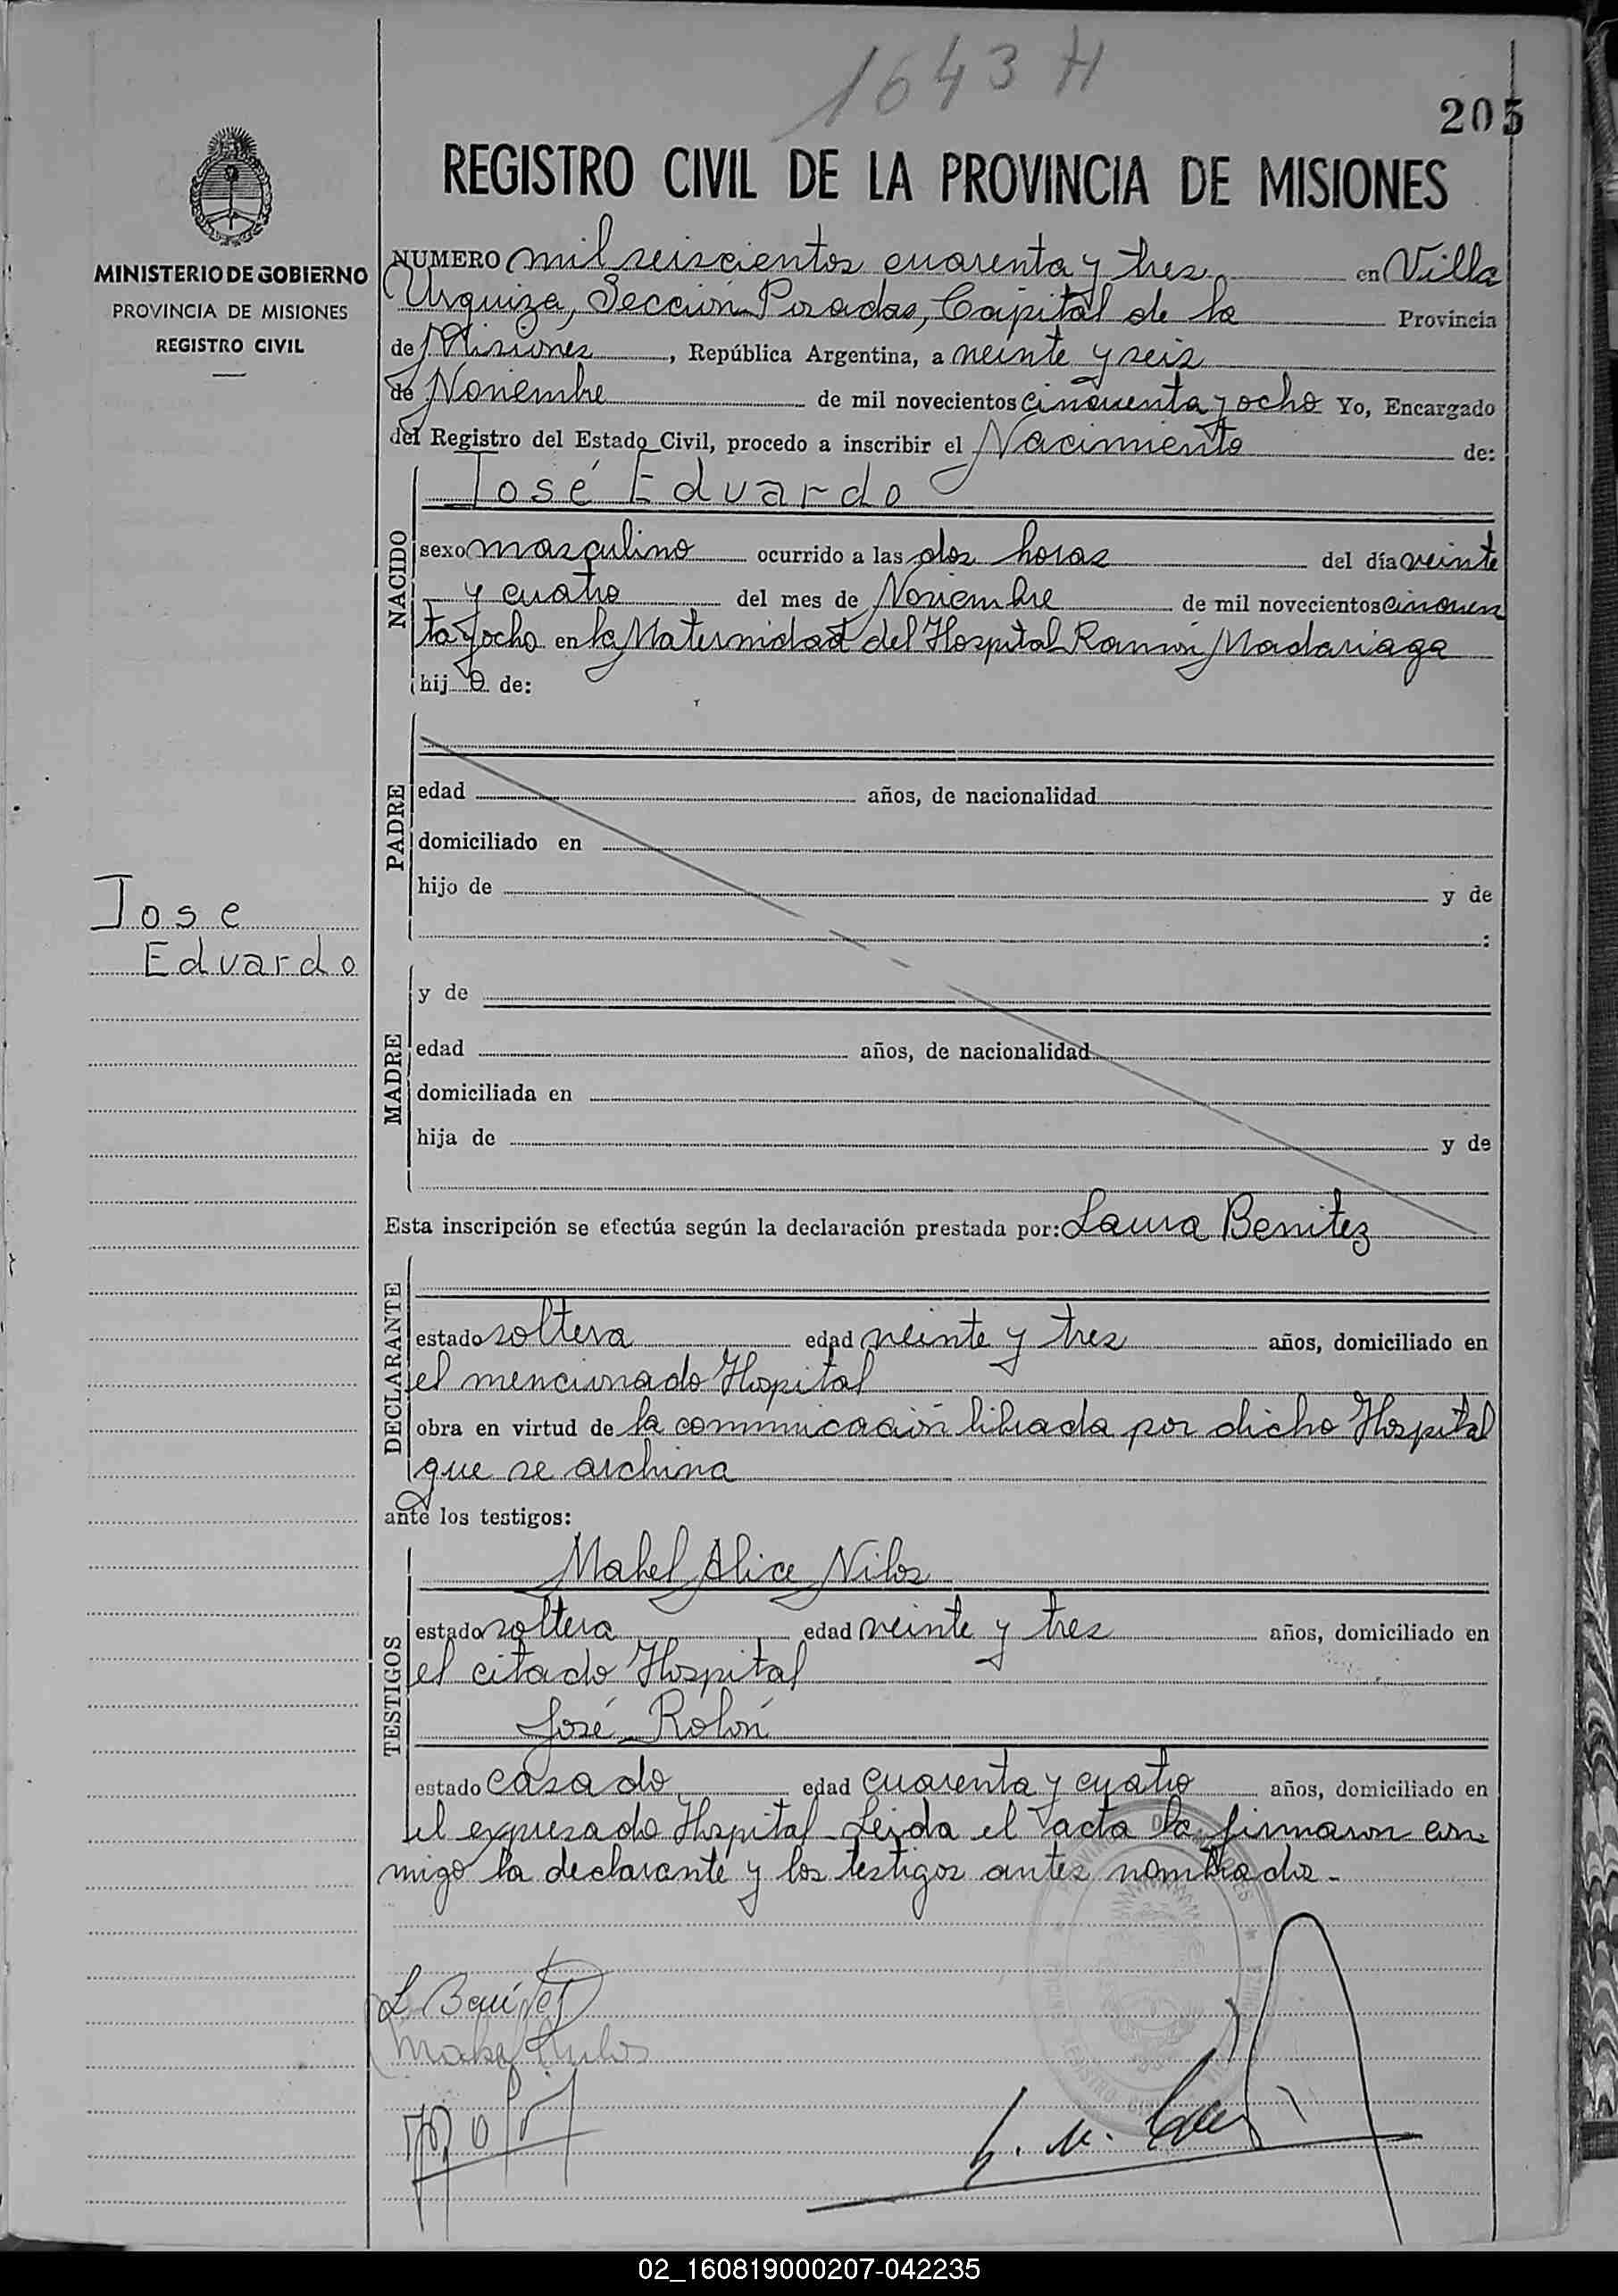 1643 H
205
REGISTRO CIVIL DE LA PROVINCIA DE MISIONES
MINISTERIO DE GOBIERNO
PROVINCIA DE MISIONES
REGISTRO CIVIL
NUMERO mil seiscientos cuarenta y tres en Villa
Urquiza, Sección Posadas, Capital de la Provincia
de Misiones, República Argentina, a veinte y seis
de Noviembre de mil novecientos cincuenta y ocho Yo, Encargado
del Registro del Estado Civil, procedo a inscribir el Nacimiento de:
José Eduardo
NACIDO
sexo masculino ocurrido a las dos horas del día veinte
y cuatro del mes de Noviembre de mil novecientos cincuen
ta y ocho en la Maternidad del Hospital Ramón Madariaga
hij o de:
PADRE
edad años, de nacionalidad
domiciliado en
hijo de y de
:
Jose
Eduardo
MADRE
y de
edad años, de nacionalidad
domiciliada en
hija de y de
Esta inscripción se efectúa según la declaración prestada por: Laura Benitez
DECLARANTE
estado soltera edad veinte y tres años, domiciliado en
el mencionado Hospital
obra en virtud de la comunicación librada por dicho Hospital
que se archiva
ante los testigos:
TESTIGOS
Mabel Alice Nilos
estado soltera edad veinte y tres años, domiciliado en
el citado Hospital
José Rolón
estado casado edad cuarenta y cuatro años, domiciliado en
el expresado Hospital - Leida el acta la firmaron con
migo la declarante y los testigos antes nombrados.-
L. Benitez
02_160819000207-042235